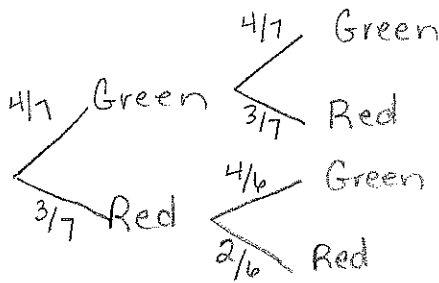 4/7 Green
4/7 Green
3/7 Red
3/7 Red
4/6 Green
2/6 Red